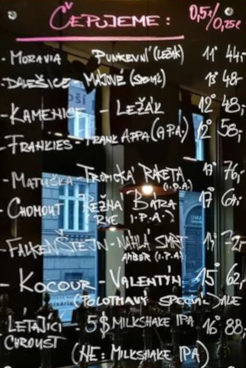 ČEPUJEME: 0,5l/0,25l
- MORAVIA PUNKEVNÍ (LEŽÁK) 11° 44,-
- DALEŠICE MÁJOVÉ 13° 48,-
- KAMENICE - LEŽÁK 12° 48,-
- FRANKIES - FRANK APPA (APA) 12° 58,-
- MATUŠKA - TROPICKÁ RAKETA (I.P.A.) 76,-
- CHOMOUT ŘEŽNÁ BÁRA 17°
RYE (I.P.A.)
- FALKENŠTEJN - NÁHLÁ SMRT
- KOCOUR - VALENTÝN 15° 62,-
(POLOTMAVÝ SPECIAL ALE
- LÉTAJÍCÍ - 5$ MILKSHAKE IPA 16° 88,-
CHROUST
(NE: MILKSHAKE IPA)